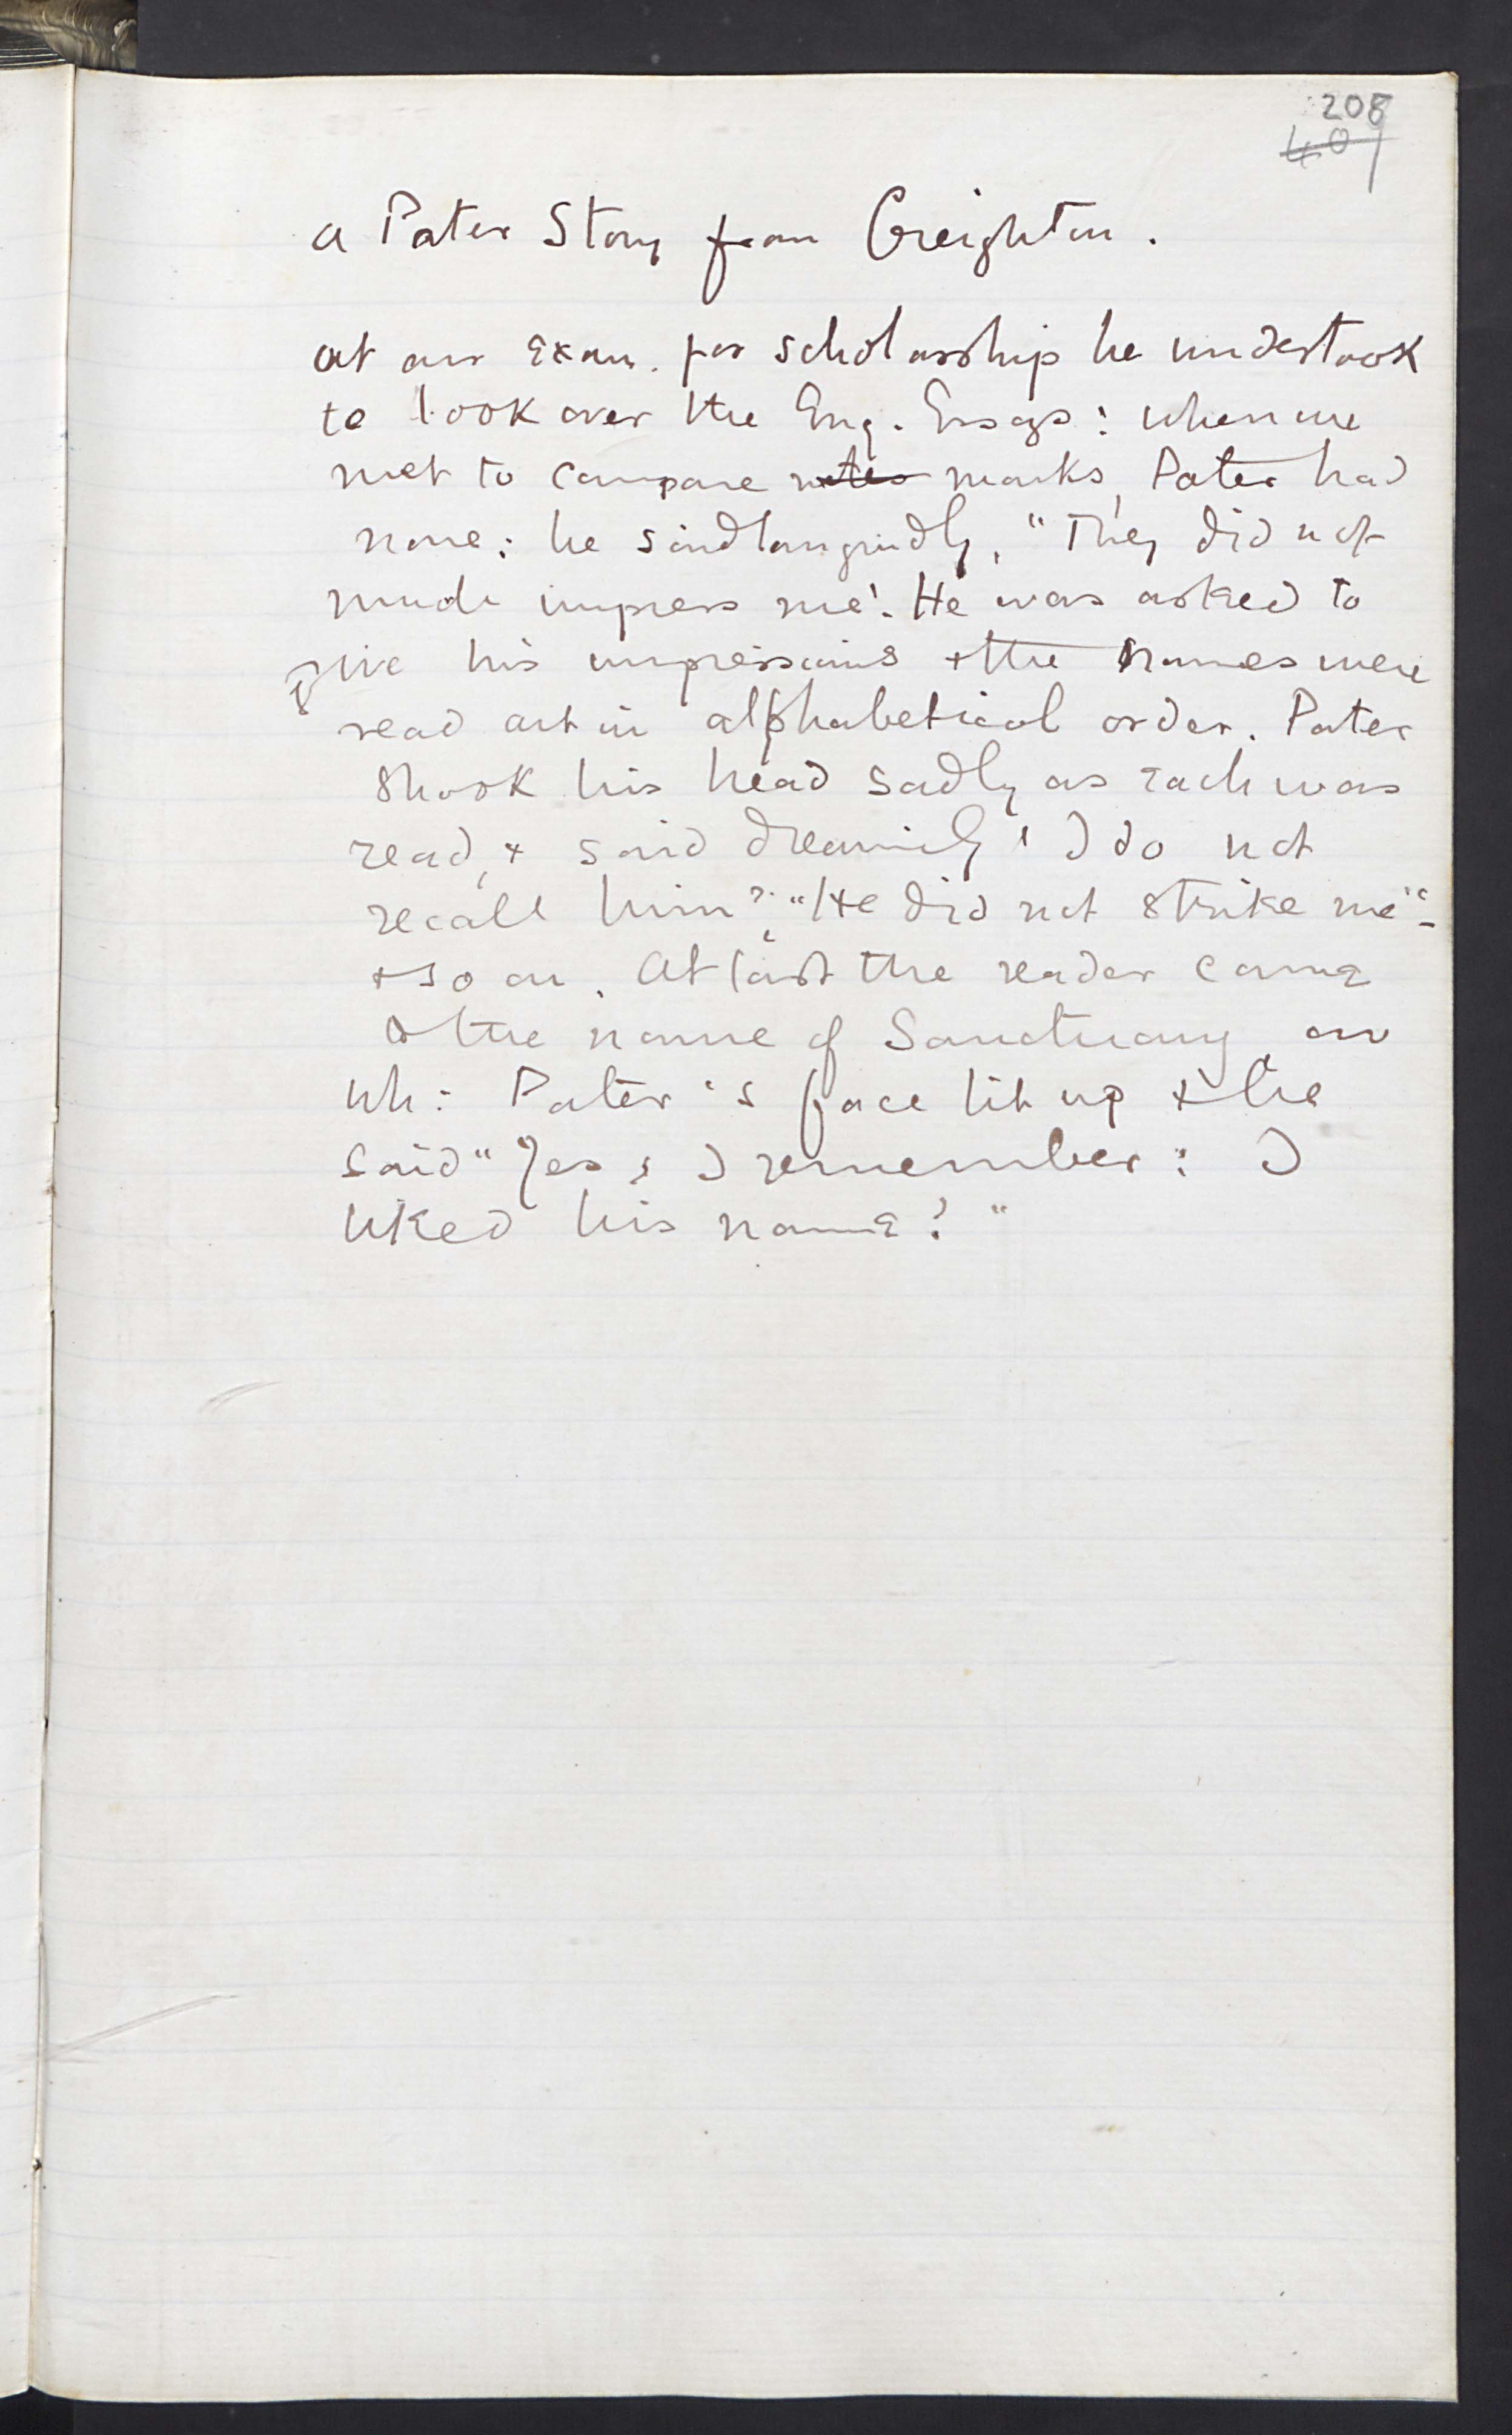 208
409
A Pater Story from Creighton.
At our Exam. for scholarship he undertook
to look over the Eng. Essays: when we
met to compare notes marks, Pater had
none: he said languidly, "They did not
much impress me'. He was asked to
give his impressions + the names were
read out in alphabetical order. Pater
shook his head sadly as each was
read, + said dreamily 'I do not
recall him", "He did not strike me" -
+ so on. At last the reader came
to the name of Sanctuary, on
wh: Pater's face lit up + he
said "Yes, I remember: I
liked his name!"